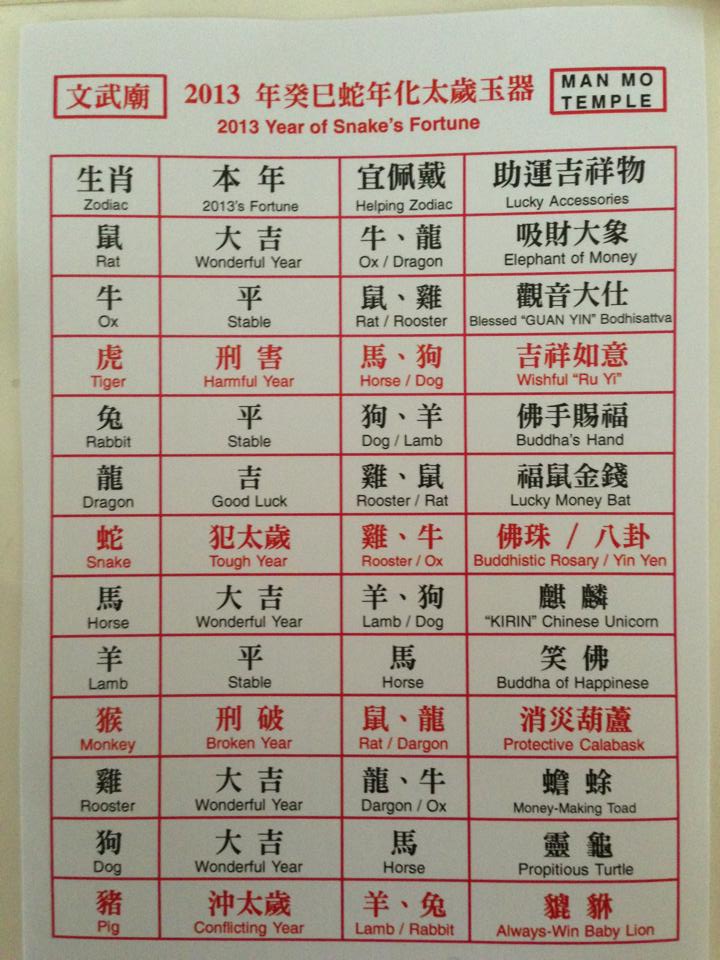 文武廟 2013 年癸巳蛇年化太歲玉器 MAN MO
TEMPLE
2013 Year of Snake's Fortune
生肖 本年 宜佩戴 助運吉祥物
Zodiac 2013's Fortune Helping Zodiac Lucky Accessories
鼠 大吉 牛、龍 吸財大象
Rat Wonderful Year Ox / Dragon Elephant of Money
牛 平 鼠、雞 觀音大仕
Ox Stable Rat / Rooster Blessed "GUAN YIN" Bodhisattva
虎 刑害 馬、狗 吉祥如意
Tiger Harmful Year Horse / Dog Wishful "Ru Yi"
兔 平 狗、羊 佛手賜福
Rabbit Stable Dog / Lamb Buddha's Hand
龍 吉 雞、鼠 福鼠金錢
Dragon Good Luck Rooster / Rat Lucky Money Bat
蛇 犯太歲 雞、牛 佛珠 / 八卦
Snake Tough Year Rooster / Ox Buddhistic Rosary / Yin Yen
馬 大吉 羊、狗 麒麟
Horse Wonderful Year Lamb / Dog "KIRIN" Chinese Unicorn
羊 平 馬 笑佛
Lamb Stable Horse Buddha of Happinese
猴 刑破 鼠、龍 消災葫蘆
Monkey Broken Year Rat / Dargon Protective Calabask
雞 大吉 龍、牛 蟾蜍
Rooster Wonderful Year Dargon / Ox Money-Making Toad
狗 大吉 馬 靈龜
Dog Wonderful Year Horse Propitious Turtle
豬 沖太歲 羊、兔 貔貅
Pig Conflicting Year Lamb / Rabbit Always-Win Baby Lion